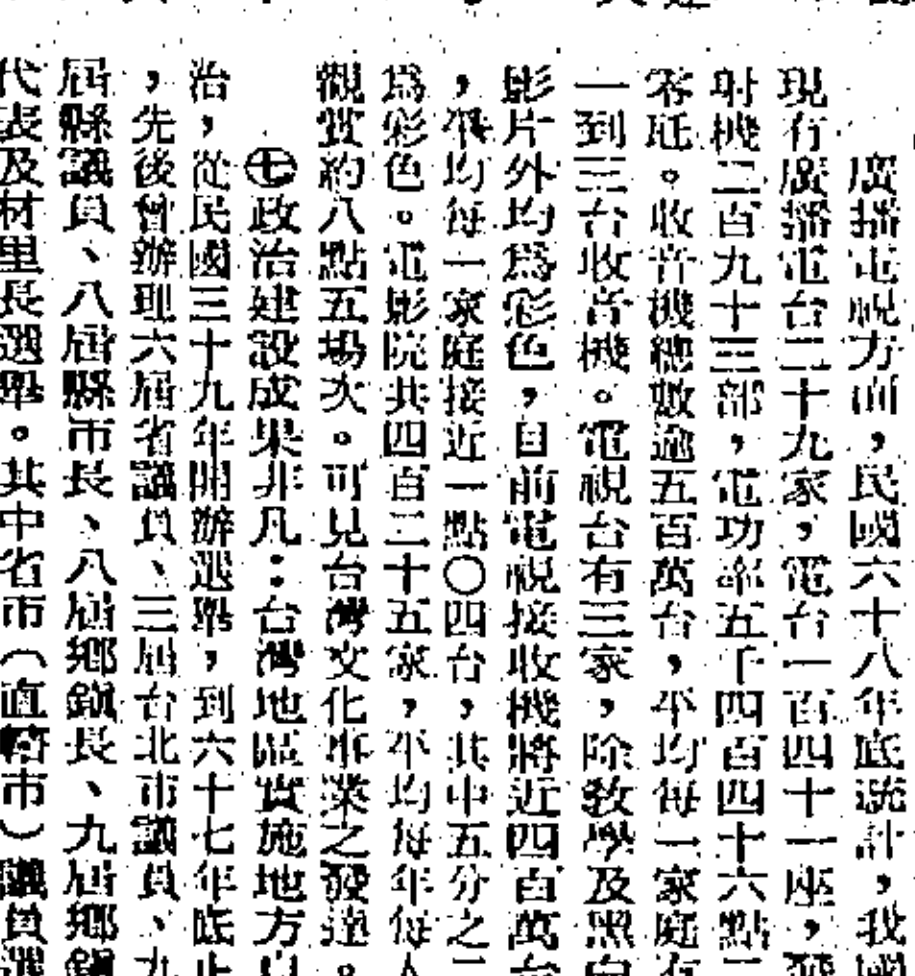 廣播電視方面，民國六十八年底統計，我國
現有廣播電台二十九家，電台一百四十一座，發
射機二百九十三部，電功率五千四百四十六點二
零瓩。收音機總數逾五百萬台，平均每一家庭有
一到三台收音機。電視台有三家，除教學及黑白
影片外均爲彩色，目前電視接收機將近四百萬台
，平均每一家庭接近一點〇四台，其中五分之二
爲彩色。電影院共四百二十五家，平均每年每人
觀賞約八點五場次。可見台灣文化事業之發達。
㊆政治建設成果非凡：台灣地區實施地方自
治，從民國三十九年開辦選舉，到六十七年底止
，先後曾辦理六屆省議員、三屆台北市議員、九
屆縣議員、八屆縣市長、八屆鄉鎮長、九屆鄉鎮
代表及村里長選舉。其中省市（直轄市）議員選